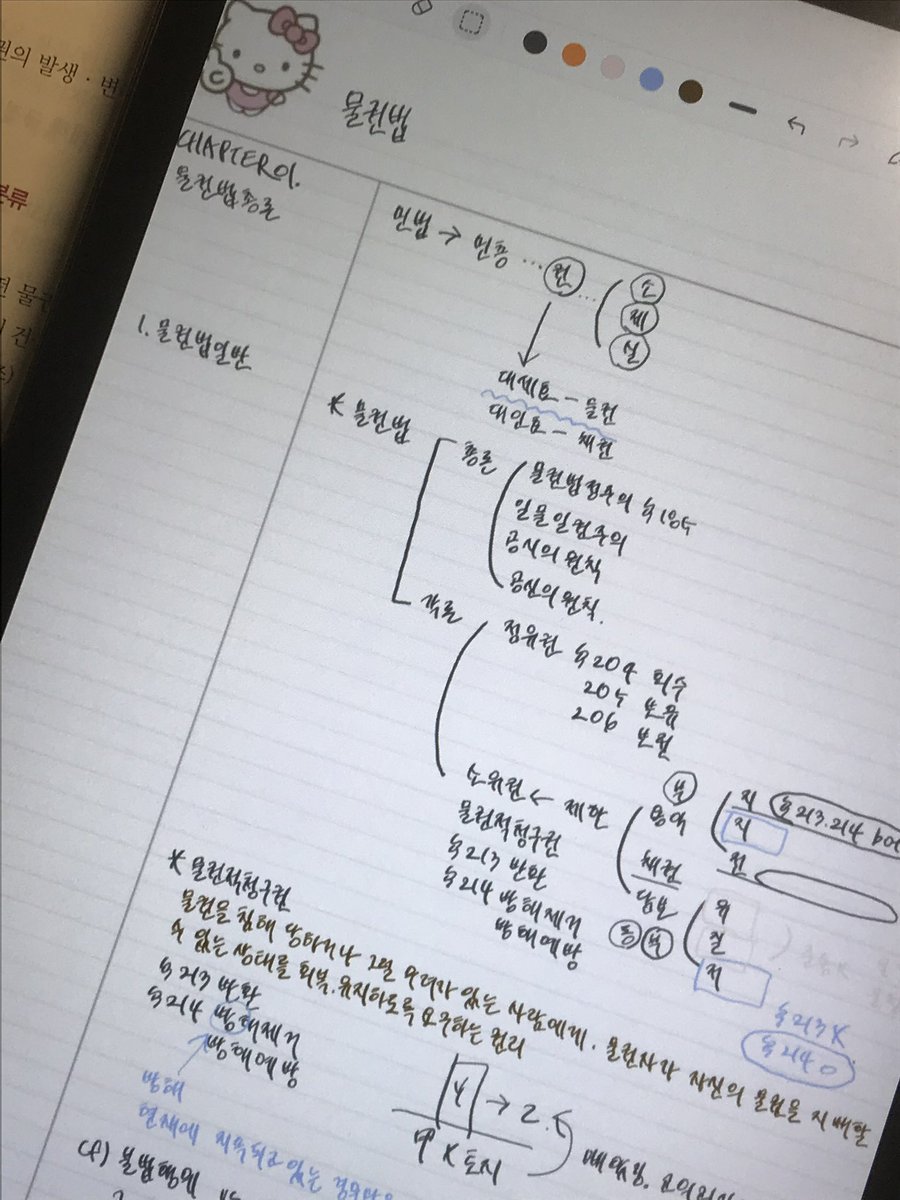 권의 발생 · 변
분류
물권법
CHAPTER 01.
물권법총론
민법 → 민총 … 권 …
소
제
실
1. 물권법일반
대세효 – 물권
대인효 – 채권
* 물권법
총론
물권법정주의 §185
일물일권주의
공시의 원칙
공신의 원칙.
각론
점유권 §204 회수
205 보유
206 보전
소유권 ← 제한
부
용익
지 §213.214 both
지
전
물권적청구권
§213 반환
§214 방해제거
방해예방
채권
담보
동 부
유
질
저
§213 X
§214 O
* 물권적청구권
물권을 침해 당하거나 그럴 우려가 있는 사람에게. 물권자가 자신의 물권을 지배할
수 있는 상태를 회복.유지하도록 요구하는 권리
§213 반환
§214 방해제거
방해예방
방해
현재에 지속되고 있는
Y → Z.
X 토지
매매.
cf) 불법행위